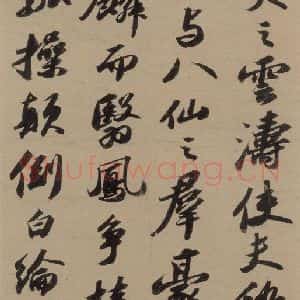 之雲濤使夫
与八仙之羣豪
麟而翳鳳争
操顛倒白綸
Shufawang.CN